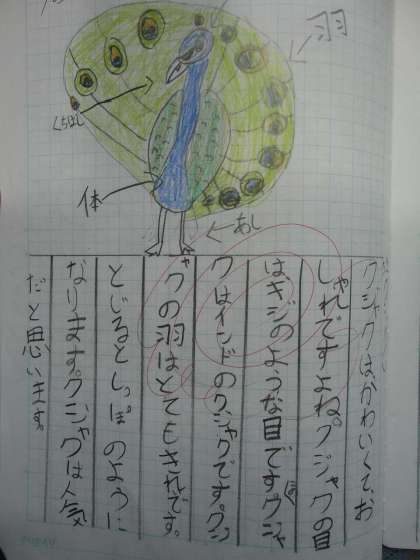 羽
くちばし
体
あし
クジャクはかわいくて、お
しゃれですよね。クジャクの目
はキジのような目です。クジャ
クはインドのクジャクです。クジ
ャクの羽はとてもきれです。
とじるとしっぽのように
なります。クジャクは人気
だと思います。